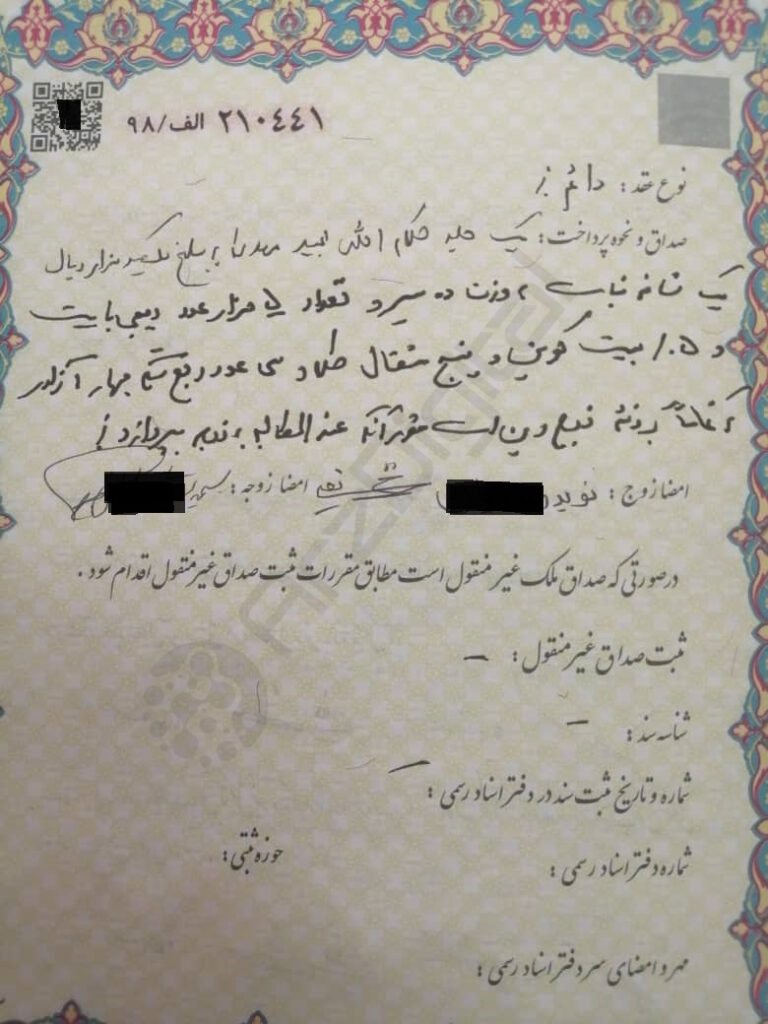 ۲۱۰۴۴۱ الف/۹۸
نوع عقد: دائم
صداق و نحوه پرداخت: یک جلد کلام الله مجید مهدیا به مبلغ یکصد هزار ریال
یک شاخه نبات به وزن ده سیر و تعداد ۵ هزار عدد دیجی بایت
و ۰.۵ بیت کوین و پنج مثقال طلا و سی عدد ربع سکه بهار آزادی
که تماماً بر ذمه زوج دین است مقرر آنکه عندالمطالبه به زوجه بپردازد
امضا زوج: نوید امضا زوجه:
درصورتی که صداق ملک غیر منقول است مطابق مقررات ثبت صداق غیر منقول اقدام شود.
ثبت صداق غیر منقول: —
شناسه سند: —
شماره و تاریخ ثبت سند در دفتر اسناد رسمی: —
شماره دفتر اسناد رسمی: حوزه ثبتی:
مهر و امضای سردفتر اسناد رسمی:
ARZDIGITAL